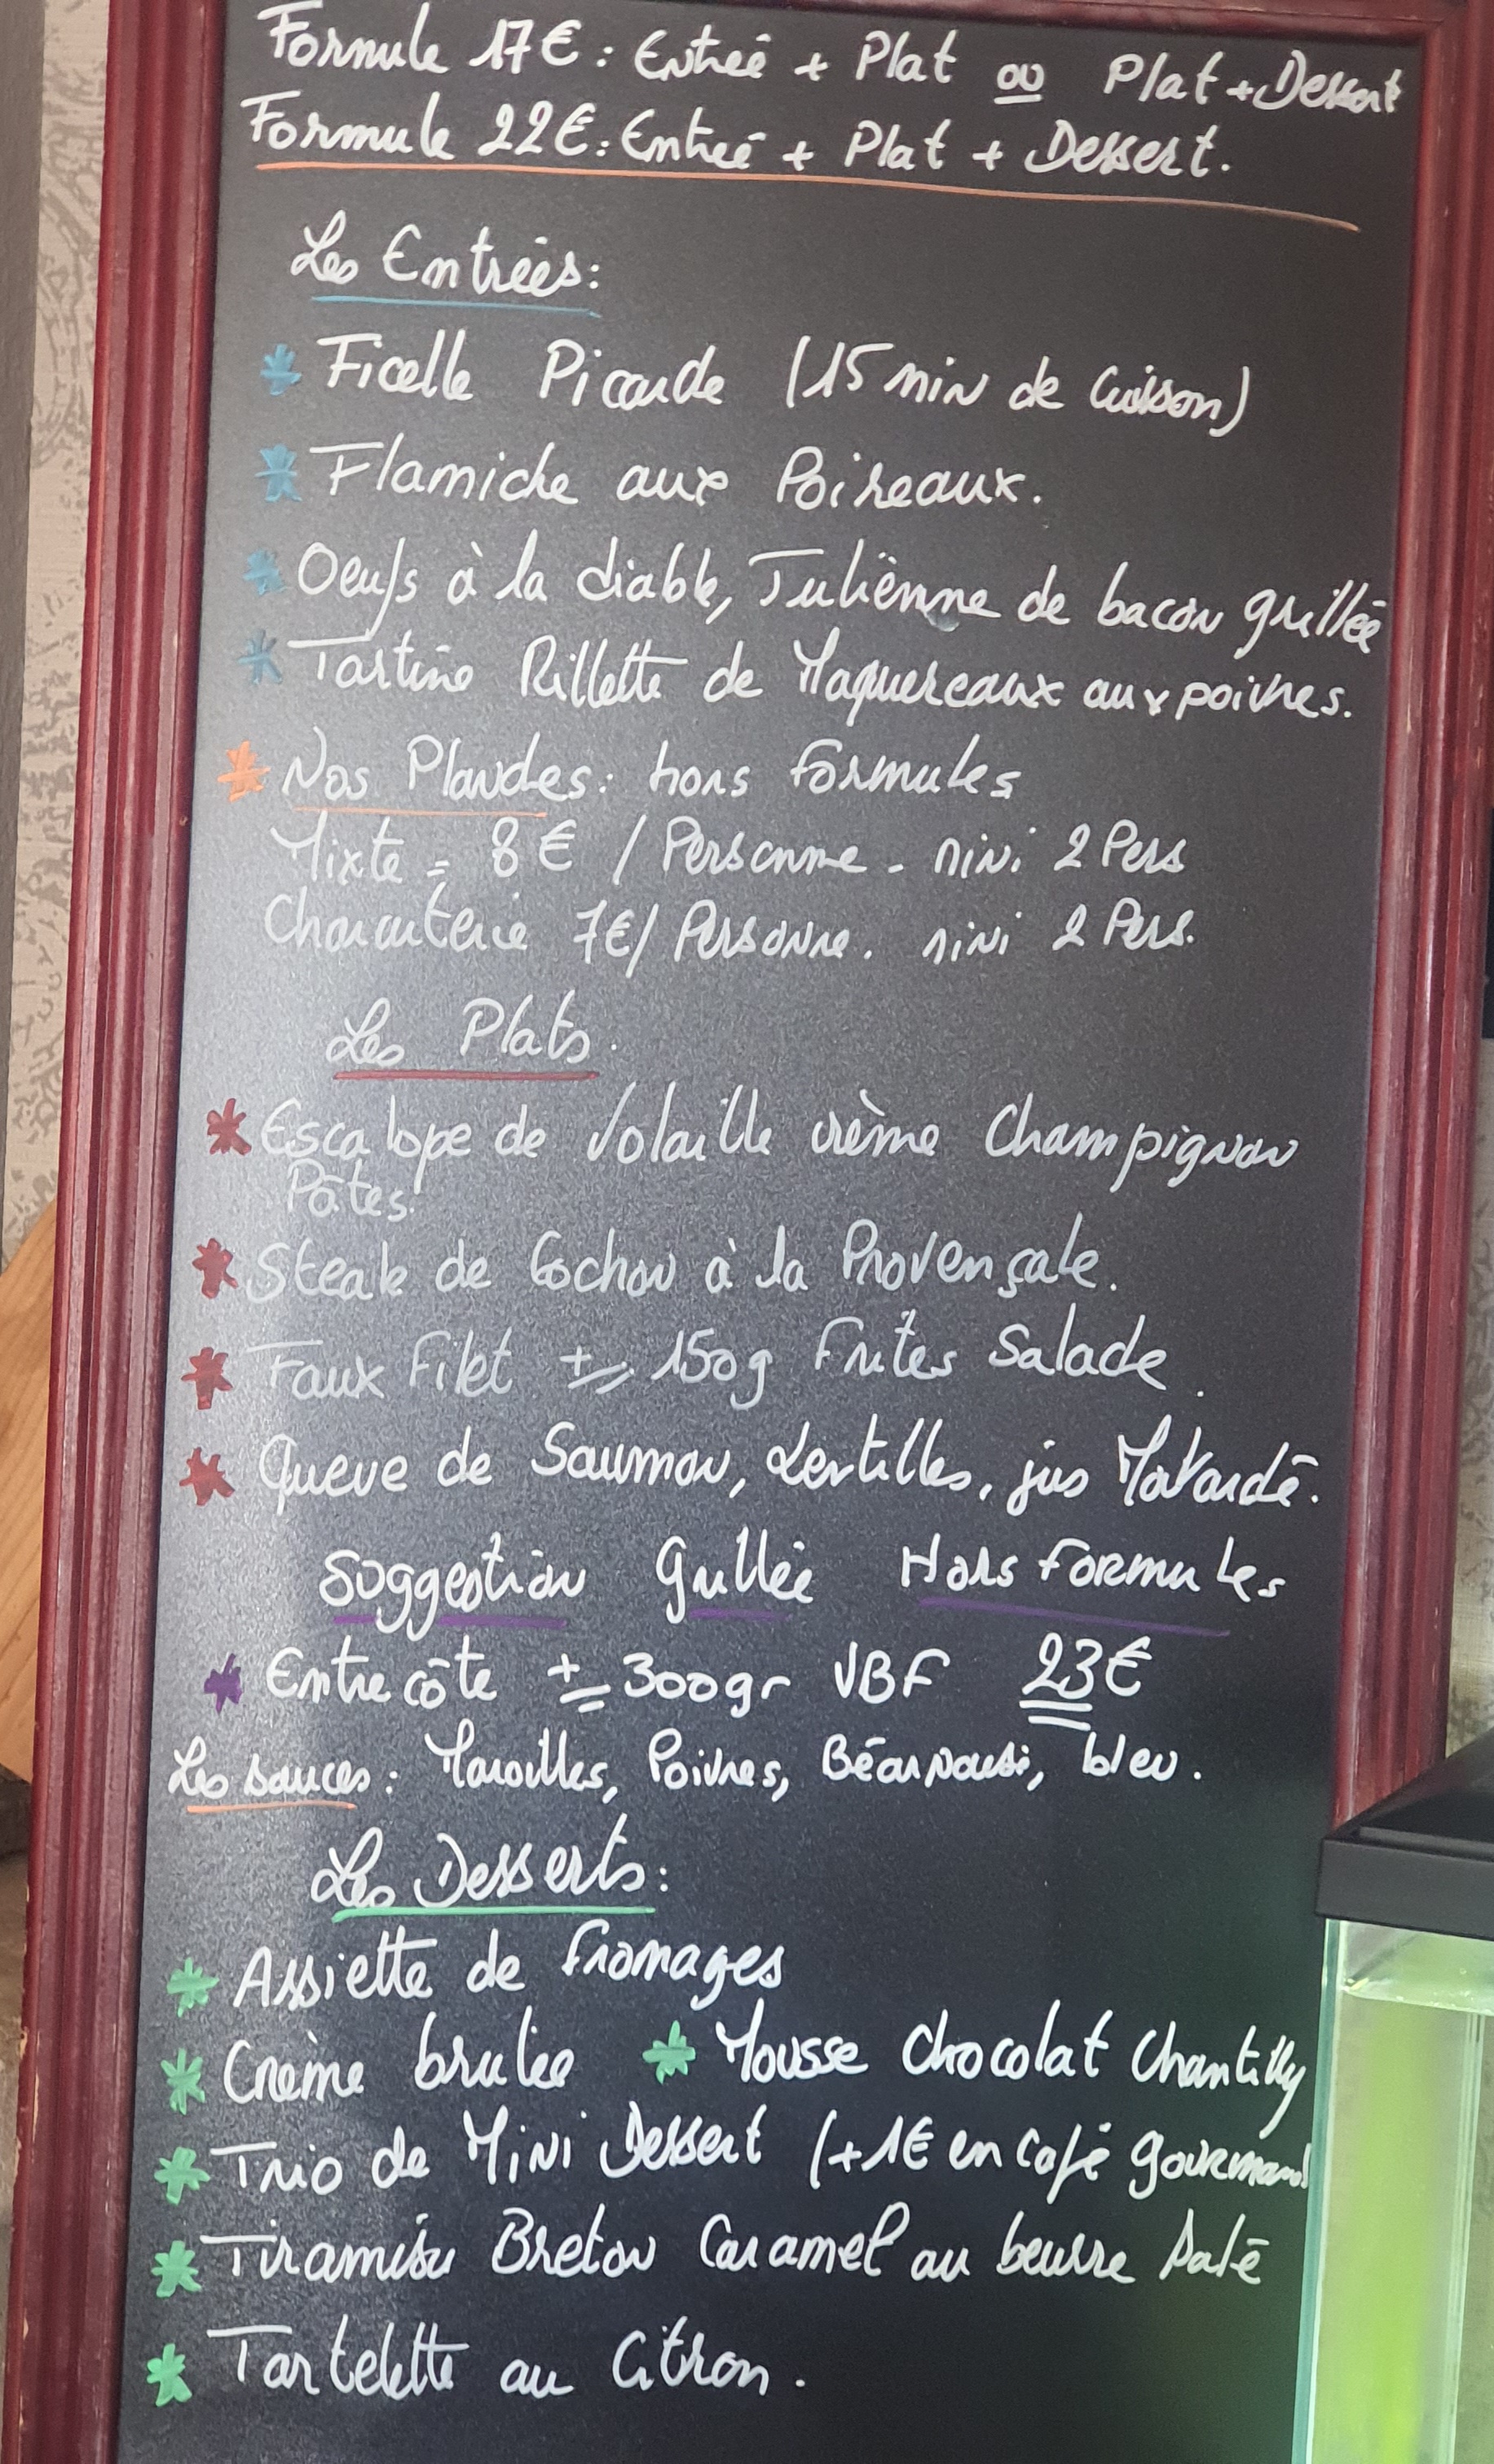 Formule 17€ : Entreé + Plat ou Plat + Dessert
Formule 22€ : Entreé + Plat + Dessert.
Les Entrées :
* Ficelle Picarde (15 min de Cuisson)
* Flamiche aux Poireaux.
* Oeufs à la diable, Julienne de bacon grillée
* Tartine Rillette de Maquereaux aux poivres.
* Nos Planches : hors formules
Mixte = 8 € / Personne - mini 2 Pers
Charcuterie 7€/ Personne. mini 2 Pers.
Les Plats.
* Escalope de Volaille crème Champignon
Pâtes.
* Steak de Cochon à la Provençale.
* Faux Filet ± 150g Frites Salade.
* Queue de Saumon, Lentilles, jus Moutardé.
Suggestion Grillée Hors Formules
* Entrecôte ± 300gr VBF 23€
Les sauces : Maroilles, Poivres, Béarnaise, bleu.
Les Desserts :
* Assiette de fromages
* Crème brulée * Mousse chocolat Chantilly
* Trio de Mini Dessert (+1€ en Café gourmand
* Tiramisu Breton Caramel au beurre salé
* Tartelette au Citron.